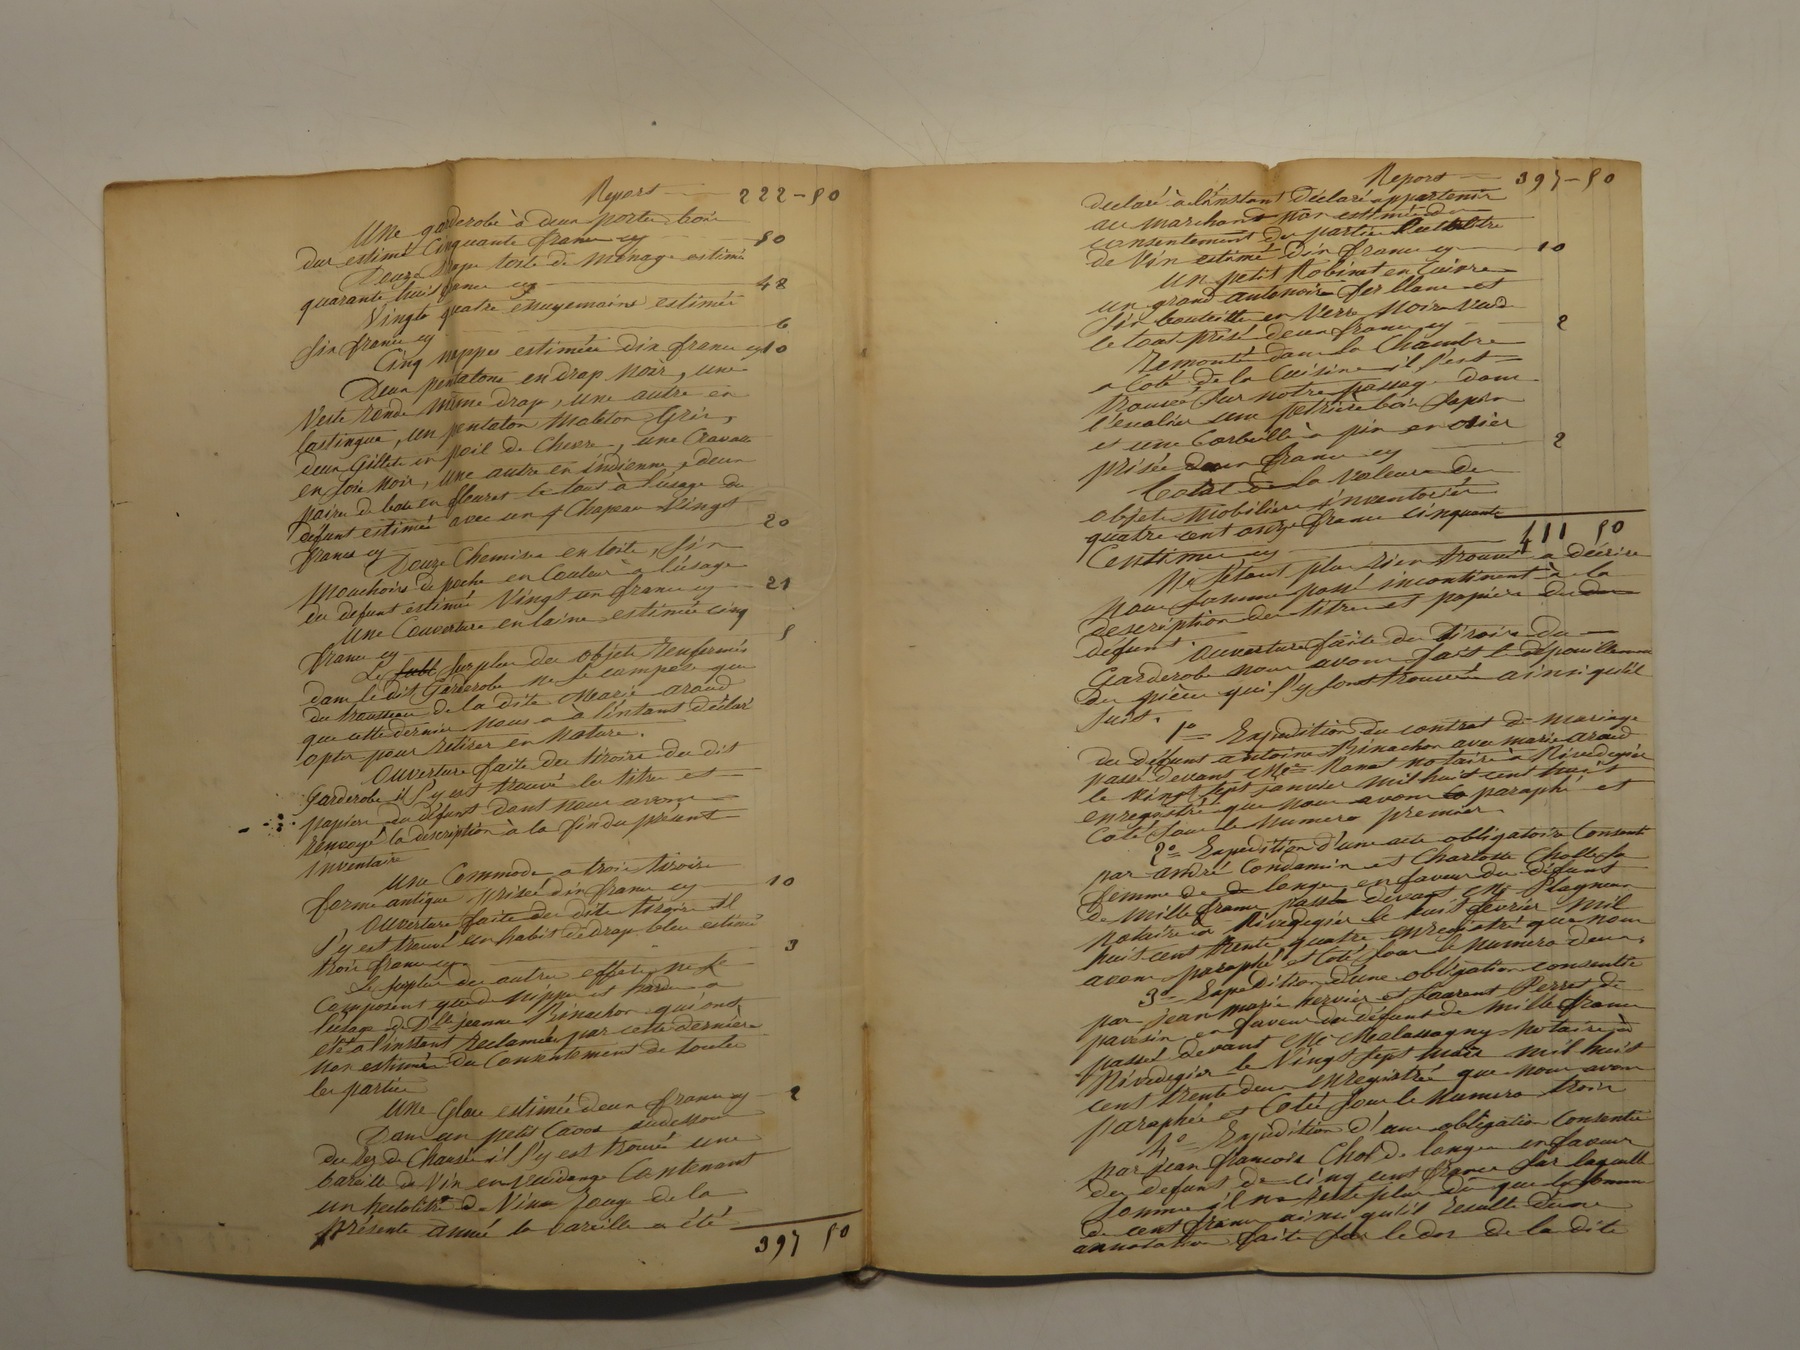 Report — 222 - 50
Une garderobe à deux portes bois
dur estimé Cinquante francs cy 50
Douze draps toile de ménage estimés
quarante huit francs cy 48
Vingts quatre essuyemains estimés
six francs cy 6
Cinq nappes estimées dix francs cy 10
Deux pentalons en drap noir, une
veste ronde même drap, une autre en
lastingue, un pentalon molleton gris,
deux Gillets en poil de chevre, une Cravatte
en soie noir, une autre en indienne, deux
paires de bas en flouret le tout à l'usage du
défunt estimés avec un Chapeau Vingt
francs cy 20
Douze Chemises en toile, six
mouchoirs de poche en Couleur à l'usage
du défunt estimés Vingt un francs cy 21
Une Couverture en laine estimée cinq
francs cy 5
Le surplus des objets renfermés
dans le dit Garderobe ne se compose que
du trousseau de la dite Marie araud
que cette dernière nous a à l'instant déclaré
opter pour retirer en nature.
Ouverture faite des tiroirs du dit
Garderobe il s'y est trouvé les titres et
papiers du défunt dont nous avons
renvoyé la description à la fin du présent
Inventaire
Une Commode a trois tiroirs
forme antique prisée dix francs cy 10
Ouverture faite des dits tiroirs il
s'y est trouvé un habit de drap bleu estimé
trois francs cy 3
Le surplus des autres effets ne se
composent que de nippes et hardes a
l'usage de Dlle jeanne Pinachon qui ont
été à l'instant reclamés par cette dernière
non estimés du Consentement de toutes
les parties
Une Glace estimée deux francs cy 2
Dans un petit Caveau audessous
du Rez de Chaussée il s'y est trouvé une
bareille de Vin en vuidange Contenant
un hectolitre de Vin rouge de la
présente année la bareille a été
397 50
Report — 397 - 50
declaré à l'instant déclaré appartenir
au marchand non estimée du
consentement des parties l'hectolitre
de Vin estimé Dix francs cy 10
Un petit Robinet en Cuivre
un grand antonoir fer blanc et
six bouteilles en Verre noir Verd
le tout prisé deux francs cy 2
Remonté dans la Chambre
a Coté de la Cuisine il s'est
trouvé sur notre passage dans
l'escalier une petrière bois Sapin
et une Corbeille à pin en osier
prisés deux francs cy 2
Total de la Valeur des
objets mobiliers inventoriés
quatre cent onze francs cinquante
Centimes cy 411 50
Ne s'étant plus rien trouvé a décrire
nous sommes passé incontinent à la
description des titres et papiers du
défunt
Ouverture faite des tiroirs du
Garderobe nous avons fait le dépouillement
des pièces qui s'y sont trouvées ainsi qu'il
suit.
1o Expedition du contrat de mariage
du défunt antoine Pinachon avec marie araud
passé devant Me Ranat notaire à Rivedegier
le Vingt sept janvier mil huit cent huit
enregistré que nous avons paraphé et
Coté sous le numero premier.
2o Expedition d'une acte obligatoire Consenti
par andré Condamin et Charlotte
femme de longes en faveur du défunt
de mille francs passée devant Me Plagneux
notaire à Rivedegier le huit fevrier mil
huit cent trente quatre enregistré que nous
avons paraphé et Coté sous le numero deux.
3o Expedition d'une obligation consentie
par jean marie hervier et Laurent Perret de
pavesin en faveur du défunt de mille francs
passée devant Me Malassagny notaire à
Rivedegier le Vingt sept mars mil huit
cent trente deux enregistrée que nous avons
paraphée et Cotée sous le numero trois
4o Expedition d'une obligation Consentie
par jean francois Chol de longes en faveur
du defunt de cinq cent francs sur laquelle
somme il ne reste plus dû que la somme
de cent francs ainsi qu'il résulte d'une
annotation faite sur le dos de la dite